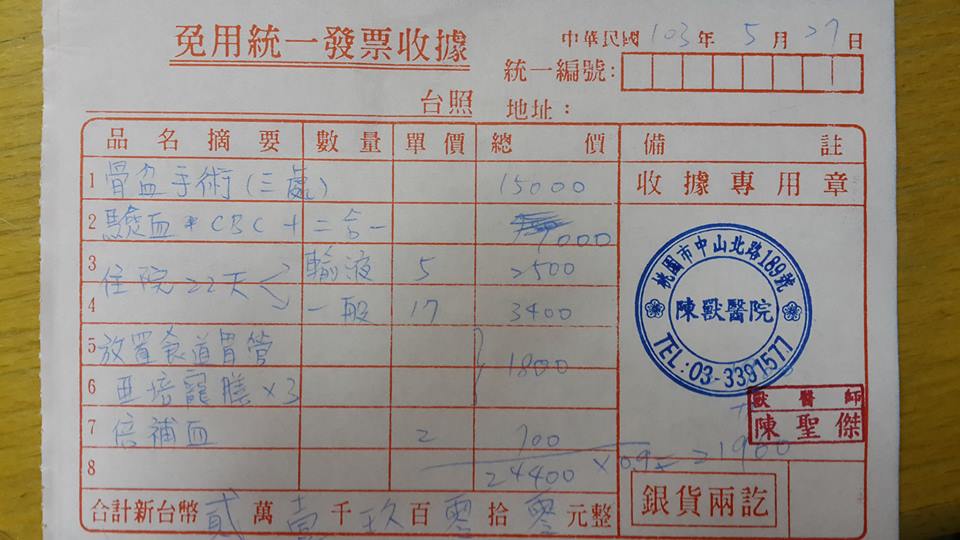 免用統一發票收據
中華民國103年5月27日
統一編號:
台照 地址:
品名摘要 數量 單價 總價 備註
1 骨盆手術(三處) 15000 收據專用章
2 驗血*CBC+二合一 1000
3 住院22天 輸液 5 2500
4 一般 17 3400
5 放置食道胃管 1800
6 亞培寵膳×3
7 倍補血 2 700
8 24400 ×0.9=21900
合計新台幣貳萬壹千玖百零拾零元整
桃園市中山北路189號
陳獸醫院
TEL:03-3391577
獸醫師
陳聖傑
銀貨兩訖